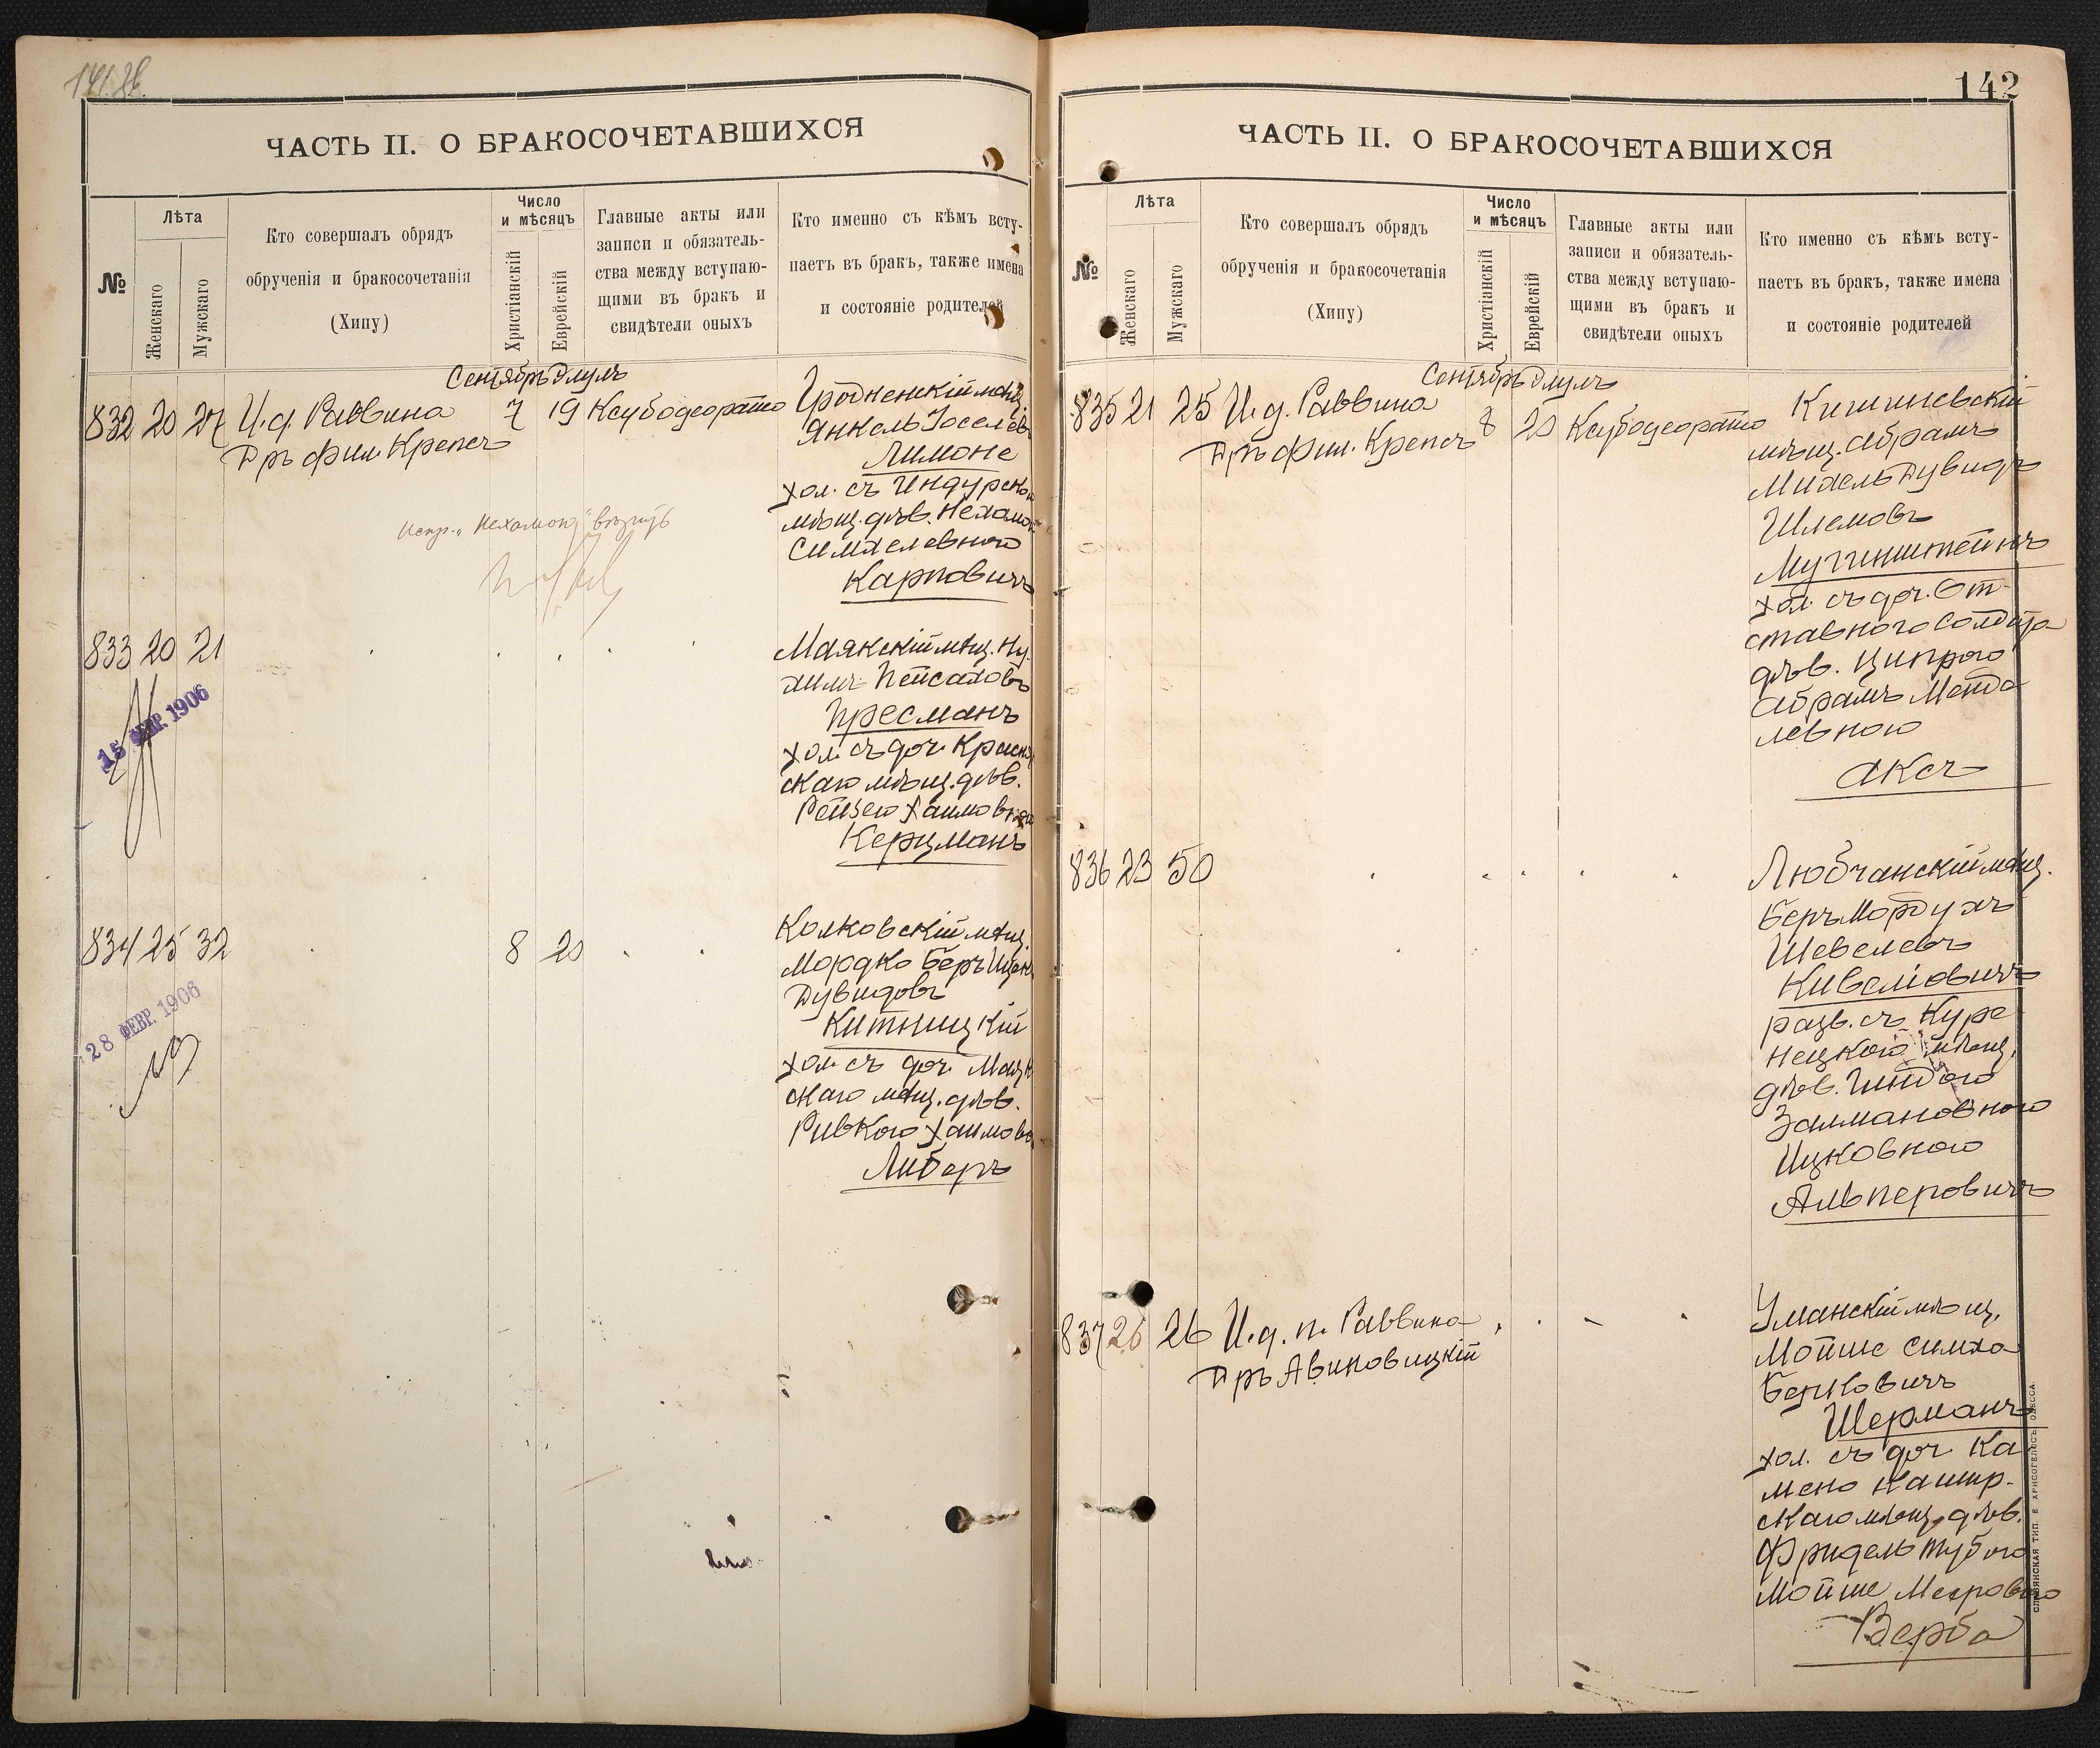 ЧАСТЬ II. О БРАКОСОЧЕТАВШИХСЯ
№
Лѣта
Женскаго
Мужскаго
Кто совершалъ обрядъ
обрученія и бракосочетанія
(Хипу)
Число
и мѣсяцъ
Христіанскій
Еврейскій
Главные акты или
записи и обязатель-
ства между вступаю-
щими въ бракъ и
свидѣтели оныхъ
Кто именно съ кѣмъ всту-
паетъ въ бракъ, также имена
и состояніе родителей
Сентябрь Элулъ
832 20 27 И. д. Раввина 7 19
Д-ръ фил. Крепсъ
Гродненскій мѣщ.
Янкель Іоселевъ
Лимоне
хол. съ Индурской
мѣщ. дѣв.
Симхелевною
Карповичъ
833 20 21
Маякскій мѣщ. Ну-
химъ Пейсаховъ
Пресманъ
хол. съ доч.
скаго мѣщ. дѣв.
Рейзею Хаимовною
Керцманъ
15 ФЕВР. 1906
834 25 32 8 20
Колковскій мѣщ.
Мордко Беръ
Дувидовъ
Китницкій
хол. съ доч.
скаго мѣщ. дѣв.
Ривкою
Либеръ
28 ФЕВР. 1906
142
ЧАСТЬ II. О БРАКОСОЧЕТАВШИХСЯ
№
Лѣта
Женскаго
Мужскаго
Кто совершалъ обрядъ
обрученія и бракосочетанія
(Хипу)
Число
и мѣсяцъ
Христіанскій
Еврейскій
Главные акты или
записи и обязатель-
ства между вступаю-
щими въ бракъ и
свидѣтели оныхъ
Кто именно съ кѣмъ всту-
паетъ въ бракъ, также имена
и состояніе родителей
Сентябрь Элулъ
835 21 25 И. д. Раввина 8 20
Д-ръ фил. Крепсъ
Кишиневскій
мѣщ. Абрамъ
Михель Дувидъ
Шлемовъ
хол. съ доч. От-
ставного солдата
дѣв. Ципрою
Абрамъ Менде
левною
Аксъ
836 23 50
Любчанскій мѣщ.
Беръ Мордухъ
Шевелевъ
Кивеліовичъ
разв. съ Куре-
нецкою мѣщ.
дѣв. Гиндою
Залмановною
Ицковною
Альперовичъ
837 26 26 И. д. п. Раввина
Д-ръ Авиновицкій
Уманскій мѣщ.
Мойше Симха
Берковичъ
Шерманъ
хол. съ доч. Ка-
мено Кашир-
скаго мѣщ. дѣв.
Фридель Тубою
Мойше Мееровною
Верба
СЛАВЯНСКАЯ ТИП. Е. ХРИСОГЕЛОСЪ ОДЕССА.